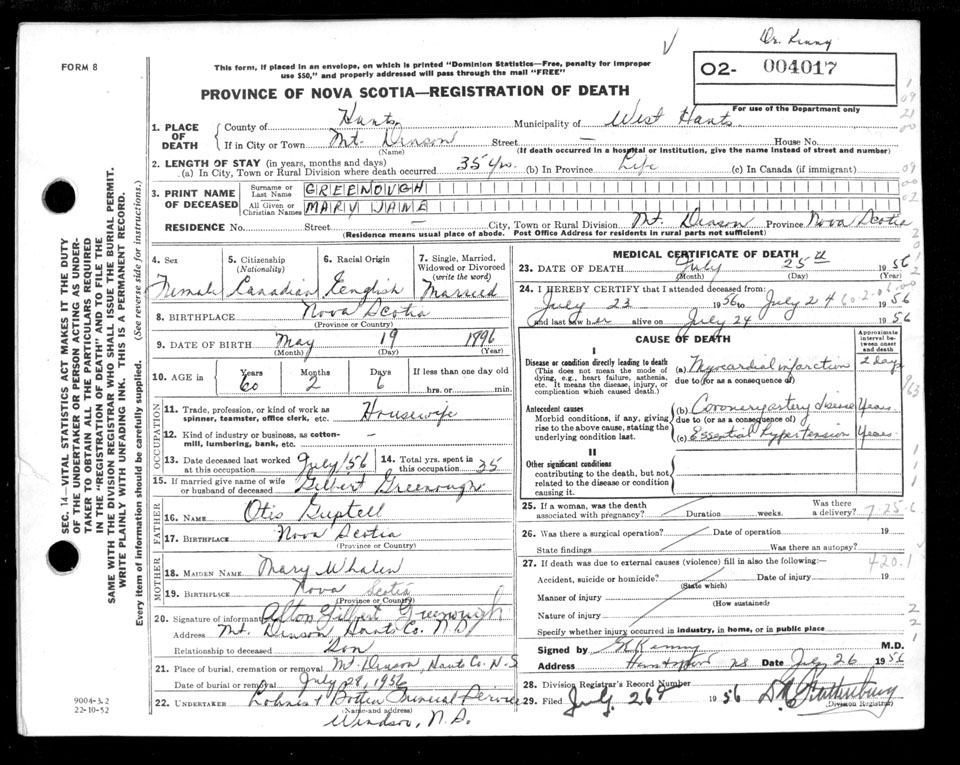 Dr. Kenny
FORM 8
This form, if placed in an envelope, on which is printed "Dominion Statistics—Free, penalty for improper
use $50," and properly addressed will pass through the mail "FREE"
02- 004017
For use of the Department only
PROVINCE OF NOVA SCOTIA—REGISTRATION OF DEATH
1. PLACE OF DEATH
County of Hants Municipality of West Hants
If in City or Town Mt. Denson Street — House No.
(Name) (If death occurred in a hospital or institution, give the name instead of street and number)
2. LENGTH OF STAY (in years, months and days)
(a) In City, Town or Rural Division where death occurred 35 yrs. (b) In Province Life (c) In Canada (if immigrant)
3. PRINT NAME OF DECEASED
Surname or Last Name GREENOUGH
All Given or Christian Names MARY JANE
RESIDENCE No. Street — City, Town or Rural Division Mt. Denson Province Nova Scotia
(Residence means usual place of abode. Post Office Address for residents in rural parts not sufficient)
4. Sex 5. Citizenship (Nationality) 6. Racial Origin 7. Single, Married, Widowed or Divorced (write the word)
Female Canadian English Married
8. BIRTHPLACE Nova Scotia
(Province or Country)
9. DATE OF BIRTH May 19 1896
(Month) (Day) (Year)
10. AGE in Years Months Days If less than one day old
60 2 6 hrs. or min.
OCCUPATION
11. Trade, profession, or kind of work as spinner, teamster, office clerk, etc. Housewife
12. Kind of industry or business, as cotton-mill, lumbering, bank, etc. —
13. Date deceased last worked at this occupation July/56 14. Total yrs. spent in this occupation 35
15. If married give name of wife or husband of deceased Gilbert Greenough
FATHER
16. NAME Otis Guptell
17. BIRTHPLACE Nova Scotia
(Province or Country)
MOTHER
18. MAIDEN NAME Mary Whalen
19. BIRTHPLACE Nova Scotia
(Province or Country)
20. Signature of informant Alton Gilbert Greenough
Address Mt. Denson, Hants Co. N.S
Relationship to deceased Son
21. Place of burial, cremation or removal Mt Denson, Hants Co. N.S
Date of burial or removal July 28, 1956
22. UNDERTAKER Funeral Service
(Name and address)
Windsor, N.S.
MEDICAL CERTIFICATE OF DEATH
23. DATE OF DEATH July 25th 1956
(Month) (Day) (Year)
24. I HEREBY CERTIFY that I attended deceased from:
July 23 1956 to July 24 1956
and last saw her alive on July 24 1956
CAUSE OF DEATH
Approximate interval between onset and death
I
Disease or condition directly leading to death
(This does not mean the mode of dying, e.g., heart failure, asthenia, etc. It means the disease, injury, or complication which caused death.)
(a) Myocardial infarction 2 days
due to (or as a consequence of)
Antecedent causes
Morbid conditions, if any, giving rise to the above cause, stating the underlying condition last.
(b) Coronary artery disease Years.
due to (or as a consequence of)
(c) Essential Hypertension Years.
II
Other significant conditions
contributing to the death, but not related to the disease or condition causing it.
25. If a woman, was the death associated with pregnancy? Duration weeks. Was there a delivery?
7.25.6
26. Was there a surgical operation? Date of operation 19
State findings Was there an autopsy?
27. If death was due to external causes (violence) fill in also the following:—
420.1
Accident, suicide or homicide? (State which) Date of injury 19
Manner of injury
(How sustained)
Nature of injury
Specify whether injury occurred in industry, in home, or in public place
Signed by Kenny M.D.
Address Hantsport NS Date July 26 1956
28. Division Registrar's Record Number
29. Filed July 26 1956
(Division Registrar)
SEC. 14—VITAL STATISTICS ACT MAKES IT THE DUTY
OF THE UNDERTAKER OR PERSON ACTING AS UNDER-
TAKER TO OBTAIN ALL THE PARTICULARS REQUIRED
IN THE "REGISTRATION OF DEATH" AND TO FILE THE
SAME WITH THE DIVISION REGISTRAR WHO SHALL ISSUE THE BURIAL PERMIT.
WRITE PLAINLY WITH UNFADING INK. THIS IS A PERMANENT RECORD.
Every item of information should be carefully supplied. (See reverse side for instructions.)
9004-3.2
22-10-52